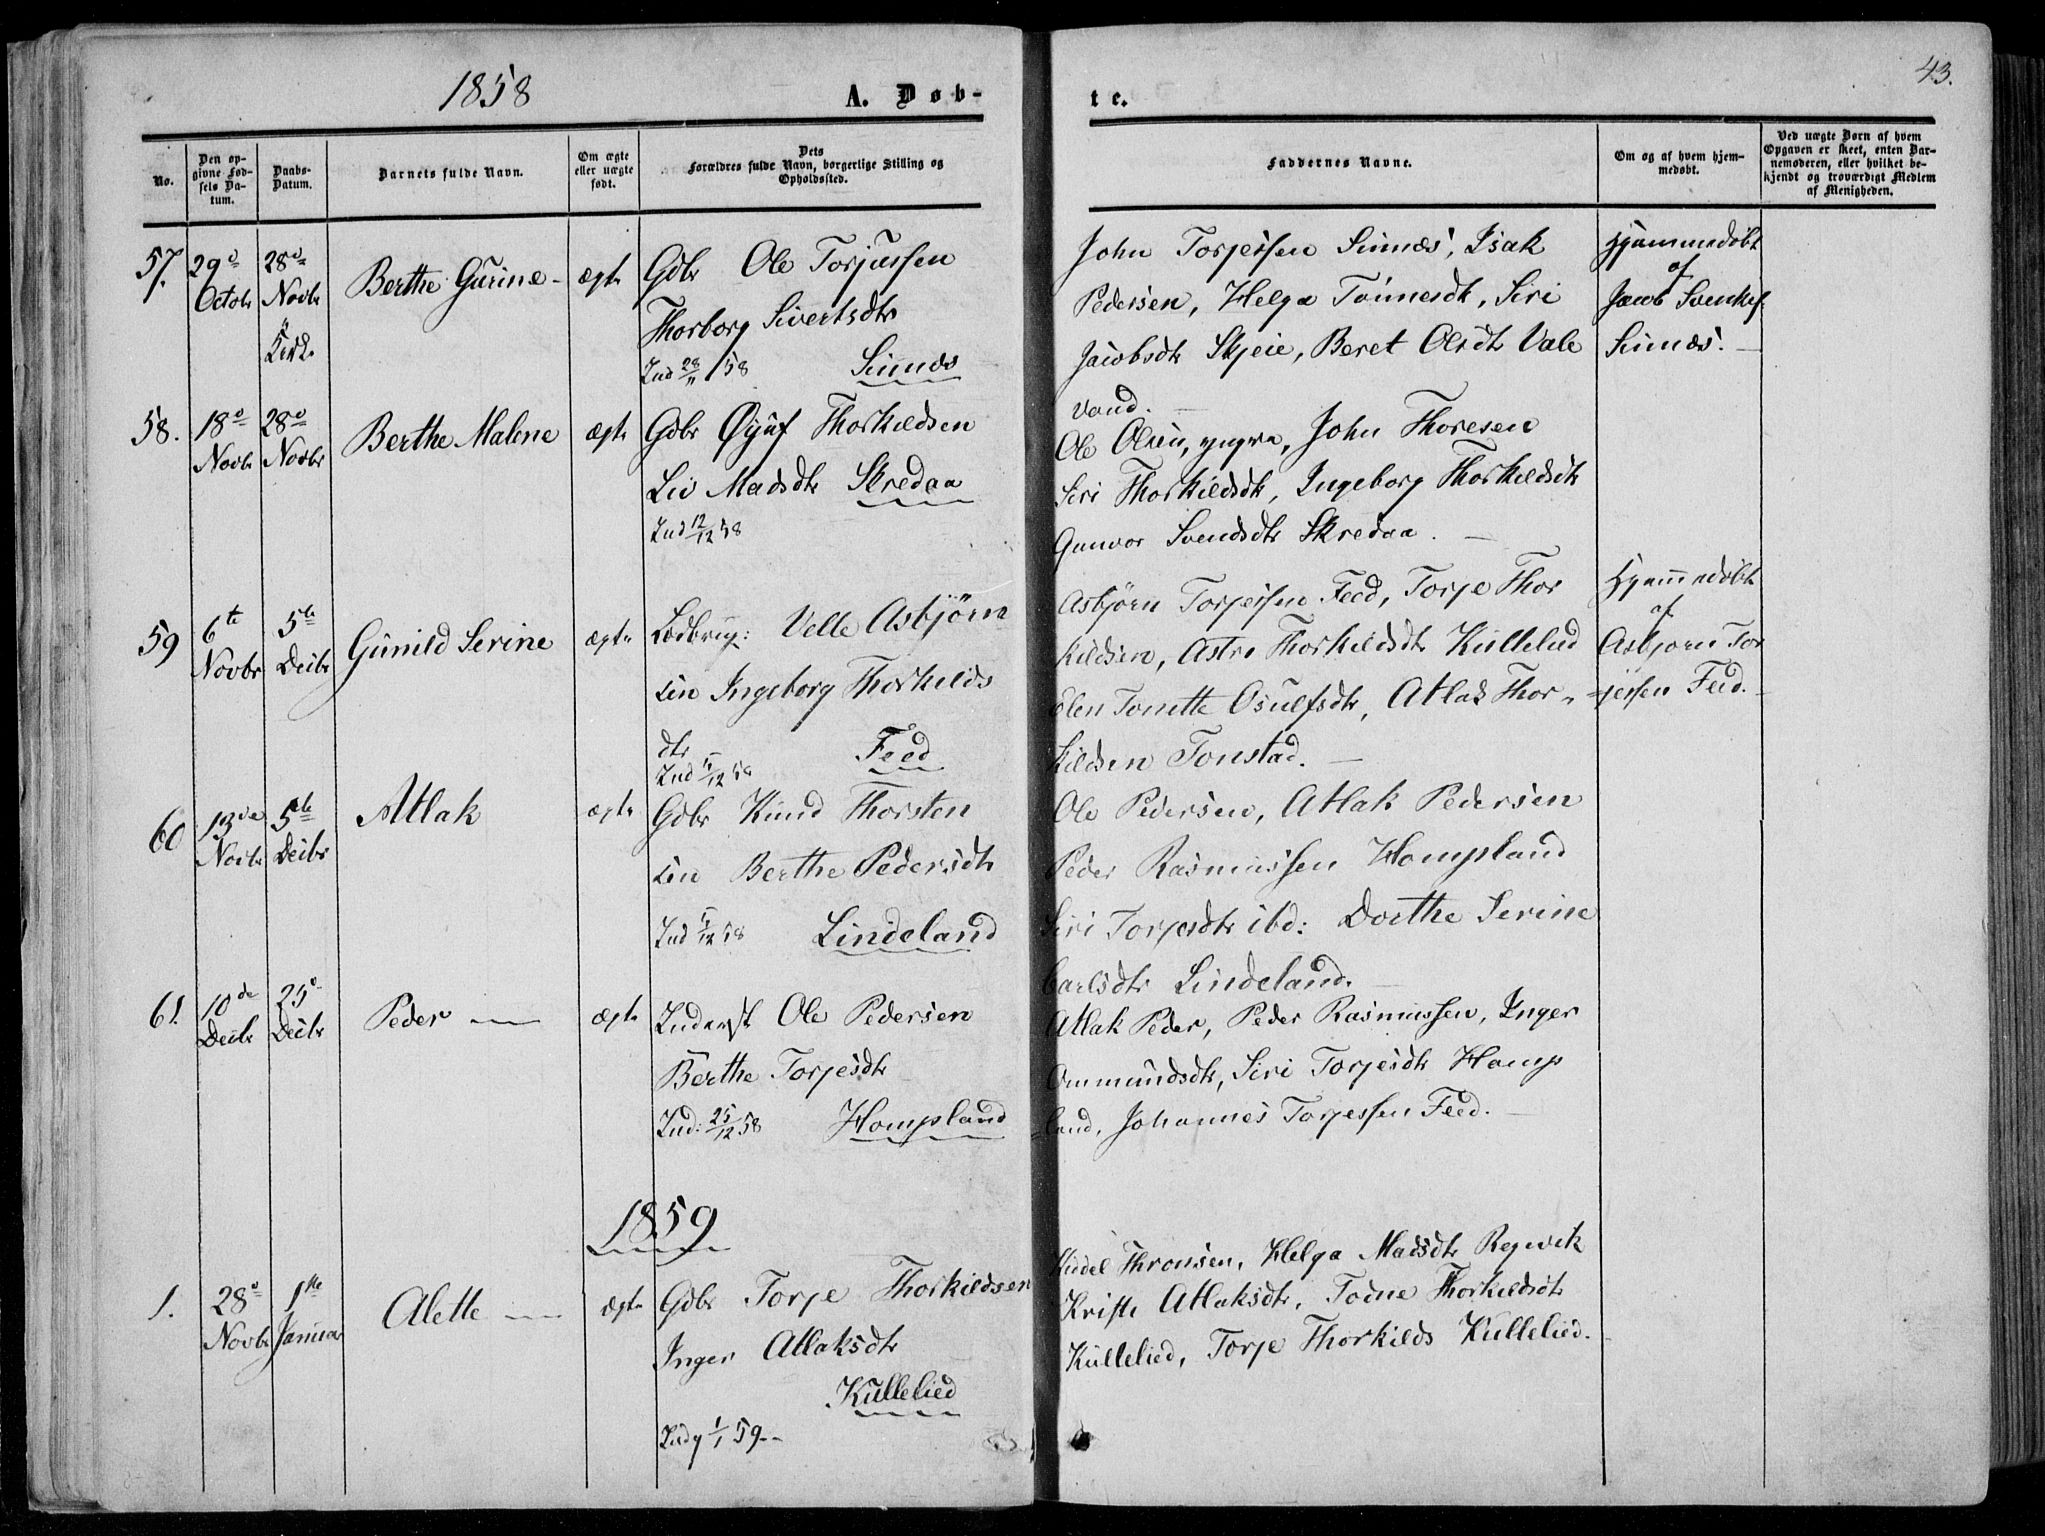 1858
A. Døb-
te.
43.
No.
Den op-
givne Fød-
sels Da-
tum.
Daabs-
Datum.
Barnets fulde Navn.
Om ægte
eller uægte
født.
Dets
Forældres fulde Navn, borgerlige Stilling og
Opholdssted.
Faddernes Navne.
Om og af hvem hjem-
medøbt.
Ved uægte Børn af hvem
Opgaven er skeet, enten Bar-
nemoderen, eller hvilket be-
kjendt og troværdigt Medlem
af Menigheden.
57. 29de Octobr 28de Novbr Kirk. Berthe Gurine - ægte Gdbr Ole Torjussen
Thorborg Sivertsdtr
Ind 28/11 58 Sinnes
John Torjessen Sinnes, Isak
Pedersen, Helga Tönnesdtr, Siri
Jacobsdtr Skjeie, Beret Olsdtr Vale
vand. -
Hjemmedøbt
af
Jacob Svendsf.
Sinnes. -
58. 18de Novbr 28de Novbr Berthe Malene ægte Gdbr Øjuf Thorkildsen
Liv Madsdtr Skredaa
Ind 12/12 58
Ole Olsen, yngre, John Thoresen
Siri Thorkildsdtr, Ingeborg Thorkildsdtr
Gunvor Svendsdtr Skredaa. -
59 6te Novbr 5te Decbr Gunild Serine ægte Ledbrug: Velle Asbjørn
sen Ingeborg Thorkilds
dtr Feed
Ind 5/12 58
Asbjørn Torjessen Feed, Torje Thor
kildsen, Astri Thorkildsdtr Kullelied
Elen Tonette Osulfsdtr, Atlak Thor-
kildsen Tonstad. -
Hjemmedøbt
af
Asbjørn Tor
jessen Feed. -
60 13de Novbr 5te Decbr Atlak ægte Gdbr Knud Thorsten
sen Berthe Pedersdtr
Ind 5/12 58 Lindeland
Ole Pedersen, Atlak Pedersen
Peder Rasmussen Hompland
Siri Torjesdtr ibd: Dorthe Serine
Carlsdtr Lindeland. -
61. 10de Decbr 25de Decbr Peder - ægte Inderst Ole Pedersen
Berthe Torjesdtr
Ind: 25/12 58 Hompland
Atlak Peder, Peder Rasmussen, Inger
Ommundsdtr, Siri Torjesdtr Homp
land, Johannes Torjessen Feed. -
1859
1. 28de Novbr 1ste Januar Alette - ægte Gdbr Torje Thorkildsen
Inger Atlaksdtr
Kullelied
Indg 1/1 59 --
Kiddel Thronsen, Helga Madsdtr Regevik
Kristi Atlaksdtr, Todne Thorkildsdtr
Kullelied, Torje Thorkilds Kullelied.